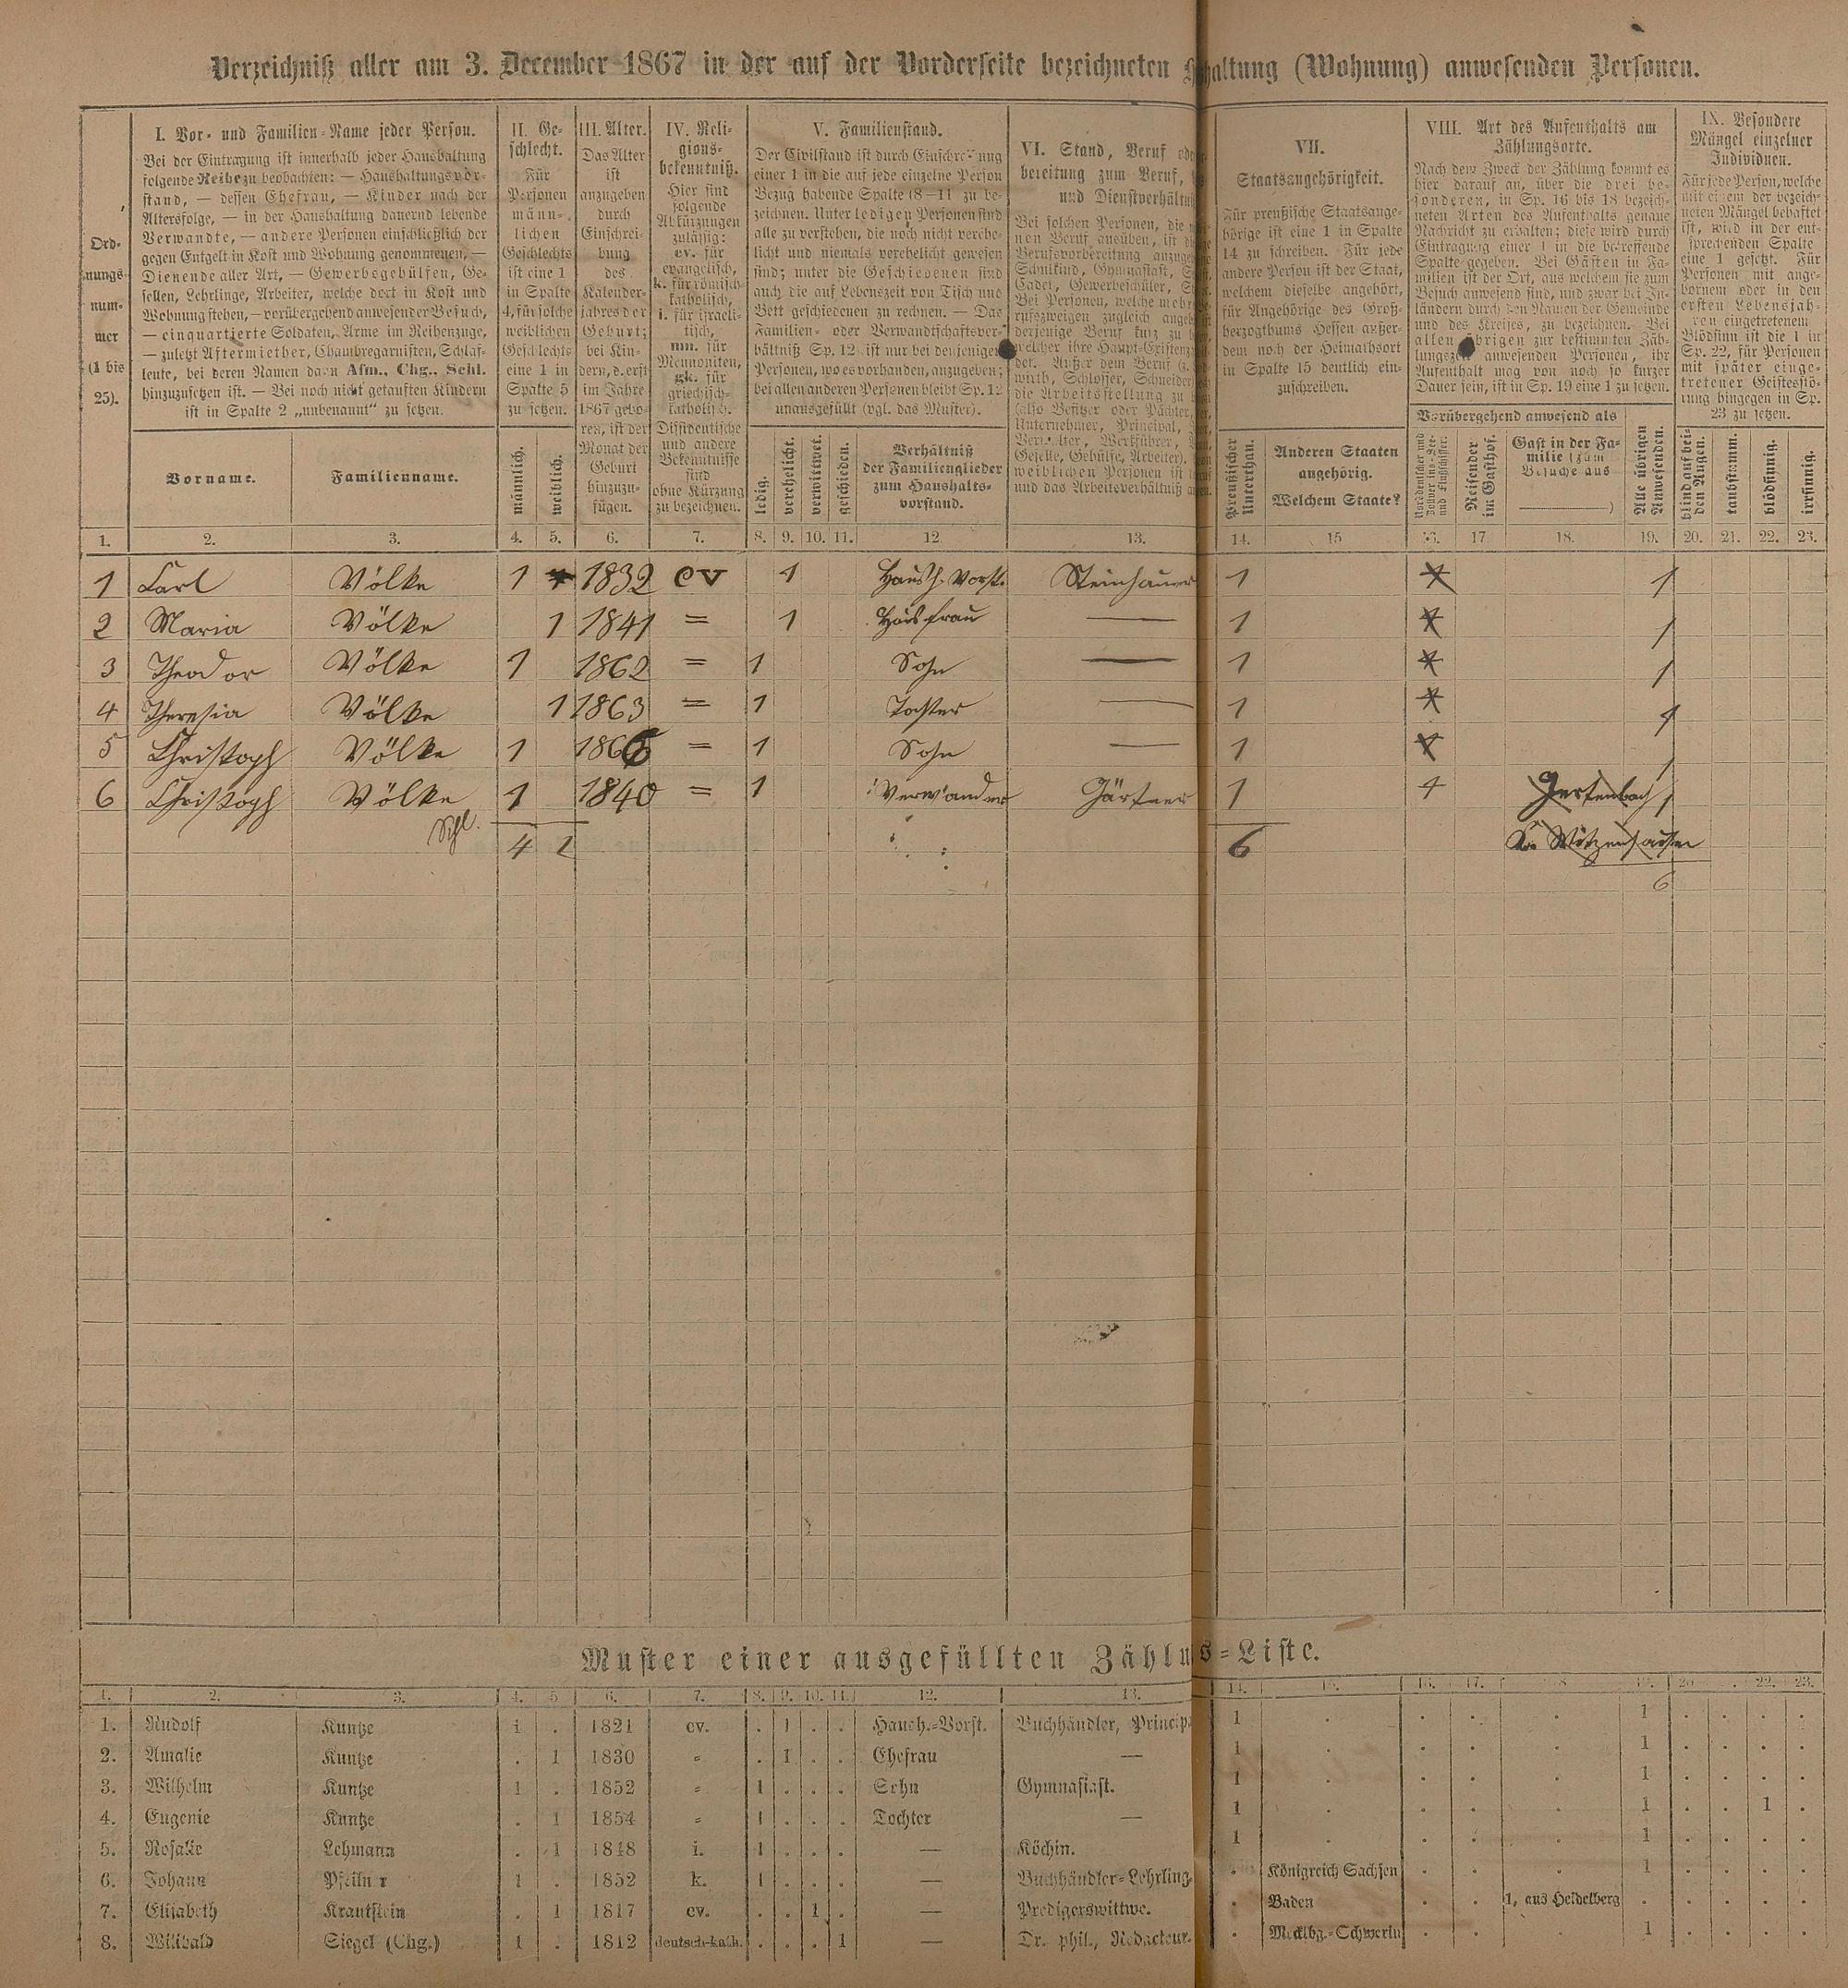 Verzeichniß aller am 3. December 1867 in der auf der Vorderseite bezeichneten haltung (Wohnung) anwesenden Personen.
Ord-
nungs-
num-
mer
(1 bis
25).
I. Vor- und Familien-Name jeder Person.
Bei der Eintragung ist innerhalb jeder Haushaltung
folgende Reihe zu beobachten: — Haushaltungsvor-
stand, — dessen Ehefrau, — Kinder nach der
Altersfolge, — in der Haushaltung dauernd lebende
Verwandte, — andere Personen einschließlich der
gegen Entgelt in Kost und Wohnung genommenen, —
Dienende aller Art, — Gewerbsgehülfen, Ge-
sellen, Lehrlinge, Arbeiter, welche dort in Kost und
Wohnung stehen, — vorübergehend anwesender Besuch,
— einquartierte Soldaten, Arme im Reihenzuge,
— zuletzt Aftermiether, Chambregarnisten, Schlaf-
leute, bei deren Namen dann Afm., Chg., Schl.
hinzuzusetzen ist. — Bei noch nicht getauften Kindern
ist in Spalte 2 „unbenannt“ zu setzen.
Vorname.
Familienname.
II. Ge-
schlecht.
Für
Personen
männ-
lichen
Geschlechts
ist eine 1
in Spalte
4, für solche
weiblichen
Geschlechts
eine 1 in
Spalte 5
zu setzen.
männlich.
weiblich.
III. Alter.
Das Alter
ist
anzugeben
durch
Einschrei-
bung
des
Kalender-
jahres der
Geburt;
bei Kin-
dern, d. erst
im Jahre
1867 gebo-
ren, ist der
Monat der
Geburt
hinzuzu-
fügen.
IV. Reli-
gions-
bekenntniß.
Hier sind
folgende
Abkürzungen
zulässig:
ev. für
evangelisch,
k. für römisch-
katholisch,
i. für israeli-
tisch,
mn. für
Mennoniten,
gk. für
griechisch-
katholisch.
Dissidentische
und andere
Bekenntnisse
sind
ohne Kürzung
zu bezeichnen.
V. Familienstand.
Der Civilstand ist durch Einschreibung
einer 1 in die auf jede einzelne Person
Bezug habende Spalte (8—11) zu be-
zeichnen. Unter ledigen Personen sind
alle zu verstehen, die noch nicht verehe-
licht und niemals verehelicht gewesen
sind; unter die Geschiedenen sind
auch die auf Lebenszeit von Tisch und
Bett geschiedenen zu rechnen. — Das
Familien- oder Verwandtschaftsver-
hältniß Sp. 12 ist nur bei denjenigen
Personen, wo es vorhanden, anzugeben;
bei allen anderen Personen bleibt Sp. 12
unausgefüllt (vgl. das Muster).
ledig.
verehelicht.
verwittwet.
geschieden.
Verhältniß
der Familienglieder
zum Haushalts-
vorstand.
VI. Stand, Beruf
bereitung zum Beruf,
und Dienstverhältni
Bei solchen Personen, die
nen Beruf ausüben, ist
Berufsvorbereitung
Schulkind, Gymnasiast,
Cadet, Gewerbeschüler,
Bei Personen, welche
rufszweigen zugleich
derjenige Beruf kurz zu
welcher ihre Haupt-Existenz
det. Außer dem Beruf
wirth, Schlosser, Schneider
die Arbeitsstellung zu
(also Besitzer oder Pächter,
Unternehmer, Principal,
Verwalter, Werkführer,
Geselle, Gehülfe, Arbeiter).
weiblichen Personen ist
und das Arbeitsverhältniß
VII.
Staatsangehörigkeit.
Für preußische Staatsange-
hörige ist eine 1 in Spalte
14 zu schreiben. Für jede
andere Person ist der Staat,
welchem dieselbe angehört,
für Angehörige des Groß-
herzogthums Hessen außer-
dem noch der Heimathsort
in Spalte 15 deutlich ein-
zuschreiben.
Preußischer
Unterthan.
Anderen Staaten
angehörig.
Welchem Staate?
VIII. Art des Aufenthalts am
Zählungsorte.
Nach dem Zweck der Zählung kommt es
hier darauf an, über die drei be-
sonderen, in Sp. 16 bis 18 bezeich-
neten Arten des Aufenthalts genaue
Nachricht zu erhalten; diese wird durch
Eintragung einer 1 in die betreffende
Spalte gegeben. Bei Gästen in Fa-
milien ist der Ort, aus welchem sie zum
Besuch anwesend sind, und zwar bei In-
ländern durch den Namen der Gemeinde
und des Kreises, zu bezeichnen. Bei
allen übrigen zur bestimmten Zäh-
lungszeit anwesenden Personen, ihr
Aufenthalt mag von noch so kurzer
Dauer sein, ist in Sp. 19 eine 1 zu setzen.
Vorübergehend anwesend als
Reisender
im Gasthof.
Gast in der Fa-
milie (zum
Besuche aus
)
Alle übrigen
Anwesenden.
IX. Besondere
Mängel einzelner
Individuen.
Für jede Person, welche
mit einem der bezeich-
neten Mängel behaftet
ist, wird in der ent-
sprechenden Spalte
eine 1 gesetzt. Für
Personen mit ange-
bornem oder in den
ersten Lebensjah-
ren eingetretenem
Blödsinn ist die 1 in
Sp. 22, für Personen
mit später einge-
tretener Geistesstö-
rung hingegen in Sp.
23 zu setzen.
blind auf bei-
den Augen.
taubstumm.
blödsinnig.
irrsinnig.
1. 2. 3. 4. 5. 6. 7. 8. 9. 10. 11. 12. 13. 14. 15 16. 17 18. 19. 20. 21. 22. 23.
1 Carl Völke 1 1832 ev 1 Haush. Vorst. Steinhauer 1 1
2 Maria Völke 1 1841 = 1 Hausfrau — 1 1
3 Theodor Völke 1 1862 = 1 Sohn — 1 1
4 Theresia Völke 1 1863 = 1 Tochter — 1 1
5 Christoph Völke 1 1866 = 1 Sohn — 1 1
6 Christoph Völke 1 1840 = 1 Verwander Gärtner 1 Gertenbach 1
Schl.
4 2 6 Kr. Witzenhausen
6
Muster einer ausgefüllten Zählu s-Liste.
1. 2. 3. 4. 5 6. 7. 8. 9. 10. 11. 12. 13. 14. 15. 16. 17. 8. 19. 20 . 22. 23.
1. Rudolf Kuntze 1 . 1821 ev. . 1 . . Haush.-Vorst. Buchhändler, Princip 1 . . . . 1 . . . .
2. Amalie Kuntze . 1 1830 = . 1 . . Ehefrau — 1 . . . . 1 . . . .
3. Wilhelm Kuntze 1 . 1852 = 1 . . . Sohn Gymnasiast. 1 . . . . 1 . . . .
4. Eugenie Kuntze . 1 1854 = 1 . . . Tochter — 1 . . . . 1 . . 1 .
5. Rosalie Lehmann . 1 1848 i. 1 . . . — Köchin. 1 . . . . 1 . . . .
6. Johann Pfeilner 1 . 1852 k. 1 . . . — Buchhändler-Lehrling. . Königreich Sachsen . . . 1 . . . .
7. Elisabeth Krautstein . 1 1817 ev. . . 1 . — Predigerswittwe. . Baden . . 1, aus Heidelberg . . . . .
8. Willibald Siegel (Chg.) 1 . 1812 deutsch-kath. . . . 1 — Dr. phil., Redacteur. . Mecklbg.-Schwerin . . . 1 . . . .